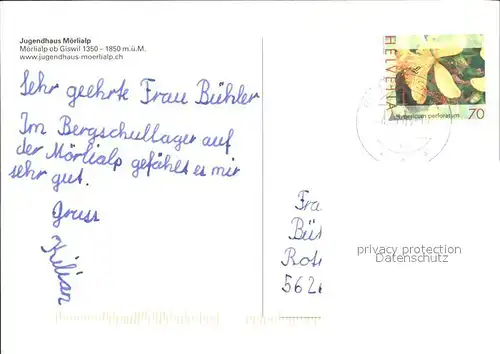 Jugendhaus Mörlialp
Mörlialp ob Giswil 1350 – 1850 m.ü.M.
www.jugendhaus-moerlialp.ch
Sehr geehrte Frau Bühler
Im Bergschullager auf
der Mörlialp gefählt es mir
sehr gut.
Gruss
Kilian
HELVETIA
Hypericum perforatum
70
Fra
Bü
Rot
562
privacy protection
Datenschutz